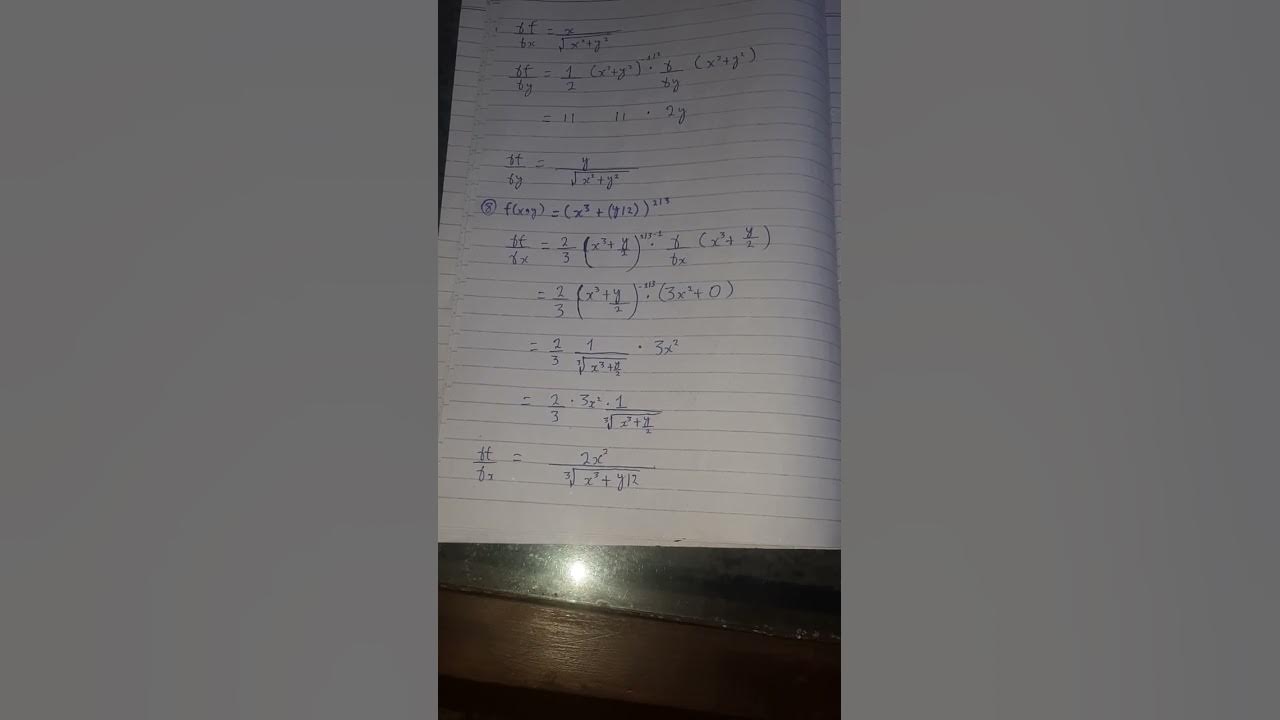 δf/δx = x/√(x²+y²)
δf/δy = 1/2 (x²+y²)^(-1/2) · δ/δy (x²+y²)
= 11 11 · 2y
δf/δy = y/√(x²+y²)
⑧ f(x,y) = (x³ + (y/2))^(2/3)
δf/δx = 2/3 (x³+y/2)^(2/3-1) · δ/δx (x³+y/2)
= 2/3 (x³+y/2)^(-1/3) · (3x²+0)
= 2/3 1/∛(x³+y/2) · 3x²
= 2/3 · 3x² · 1/∛(x³+y/2)
δf/δx = 2x²/∛(x³+y/2)